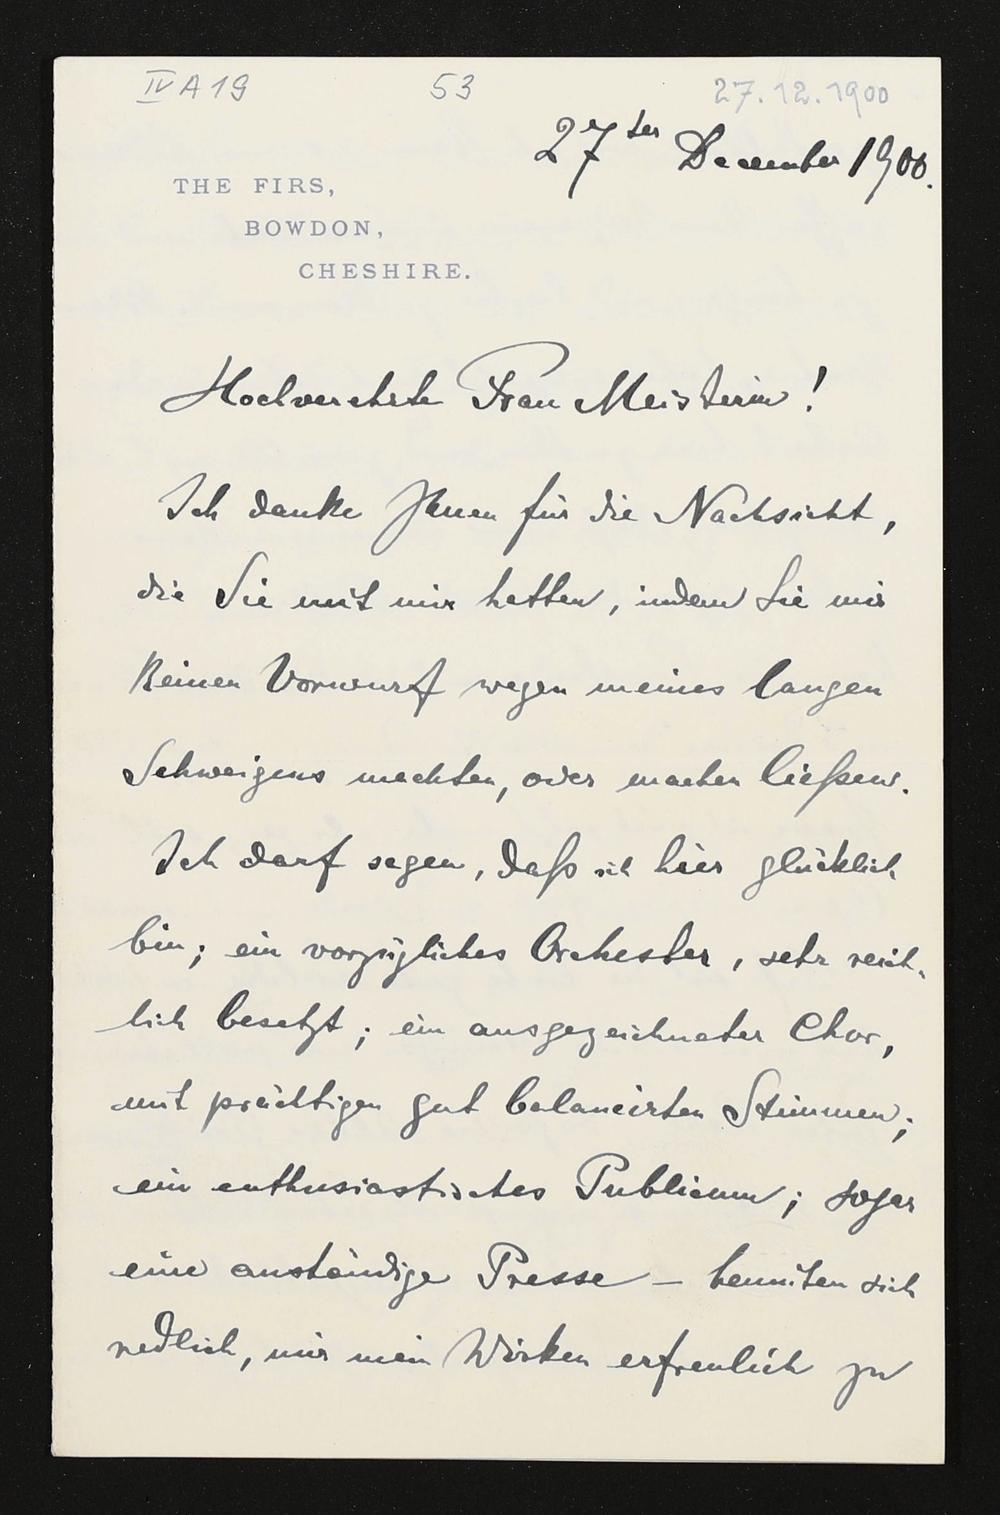 IV A 19 53 27.12.1900
27ter December 1900.
THE FIRS,
BOWDON,
CHESHIRE.
Hochverehrte Frau Meisterin!
Ich danke Ihnen für die Nachsicht,
die Sie mit mir hatten, indem Sie mir
keinen Vorwurf wegen meines langen
Schweigens machten, oder machen ließen.
Ich darf sagen, daß ich hier glücklich
bin; ein vorzügliches Orchester, sehr reich-
lich besetzt; ein ausgezeichneter Chor,
mit prächtigen gut balancirten Stimmen;
ein enthusiastisches Publicum; sogar
eine anständige Presse – bemühen sich
redlich, mir mein Wirken erfreulich zu